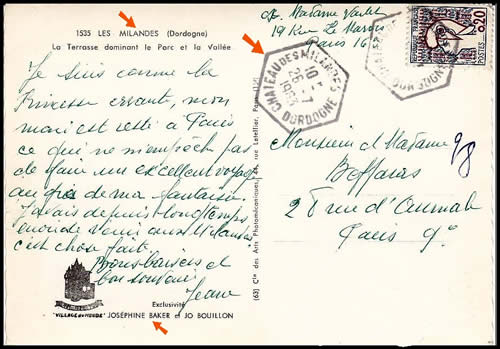 1535 LES MILANDES (Dordogne)
La Terrasse dominant le Parc et la Vallée
Je suis comme la
Princesse errante, mon
mari est resté à Paris
ce qui ne m'empêche pas
de faire un excellent voyage
au gré de ma fantaisie.
J'avais depuis longtemps
envie de venir aux Milandes
c'est chose fait.
Bons baisers et
bon souvenir
Jeane
"VILLAGE DU MONDE"
Exclusivité
JOSÉPHINE BAKER et JO BOUILLON
(63) Cie des Arts Photomécaniques, rue Letellier, Paris
Madame
19 Rue Le
Paris 16
CHATEAU DES MILANDES
10
DORDOGNE
DORDOGNE
0,20
POSTES
Monsieur et Madame
2 rue d'Aumale
Paris 9e